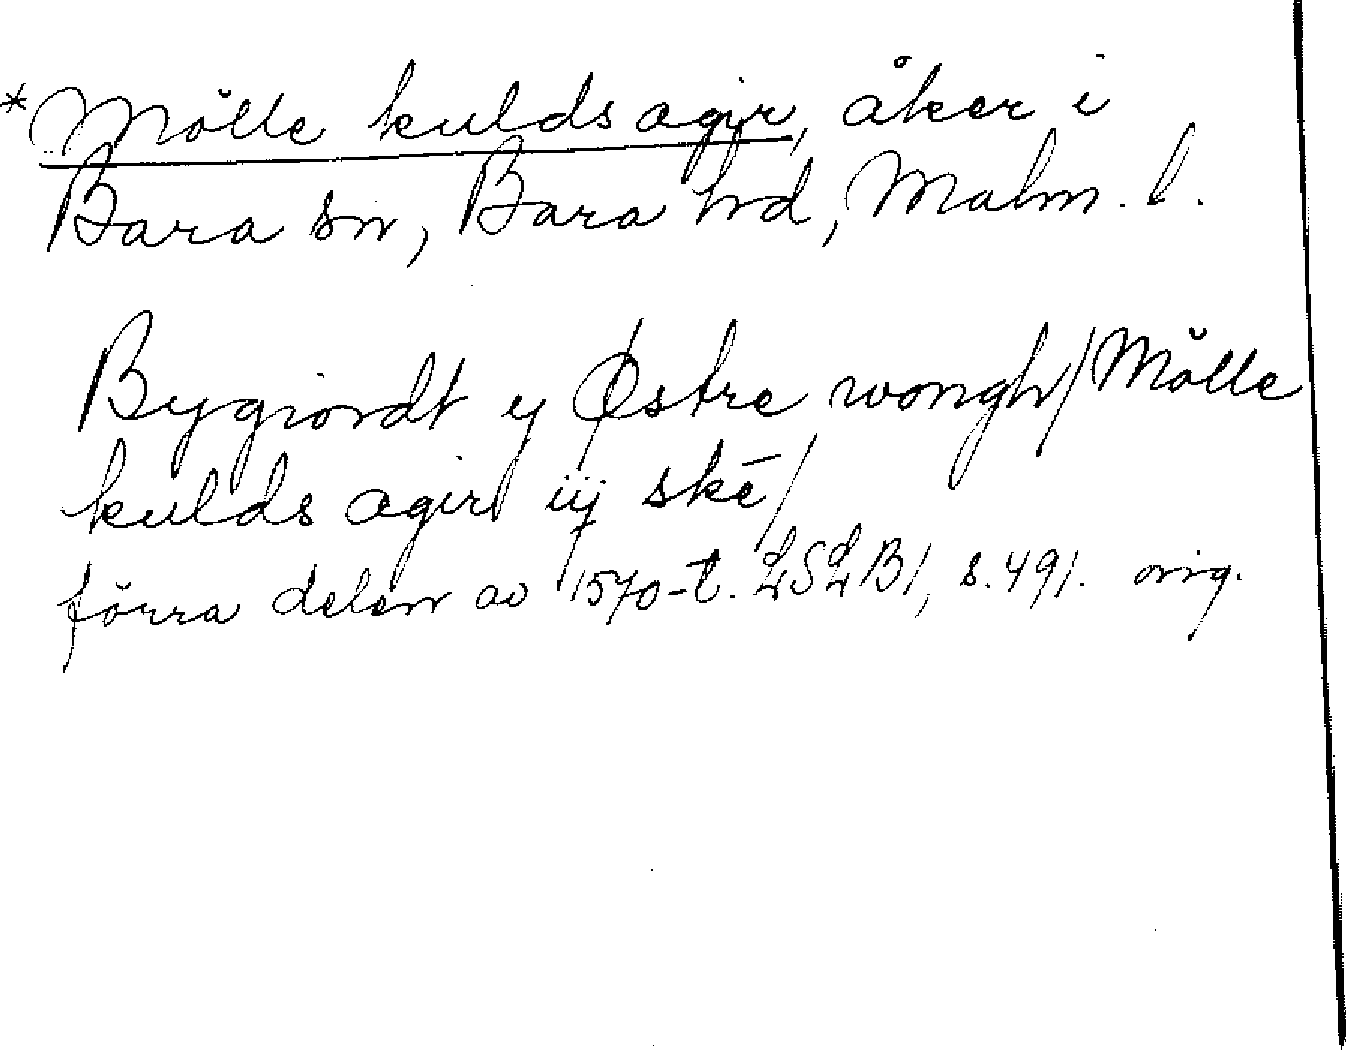 *Mŏlle kulds agir, åker i
Bara sn, Bara hd, Malm. l.
Bygiordt y Østre wongh/Mŏlle
kulds agir iij skē/
förra delen av 1570-t. LSLB1, s.491. orig.